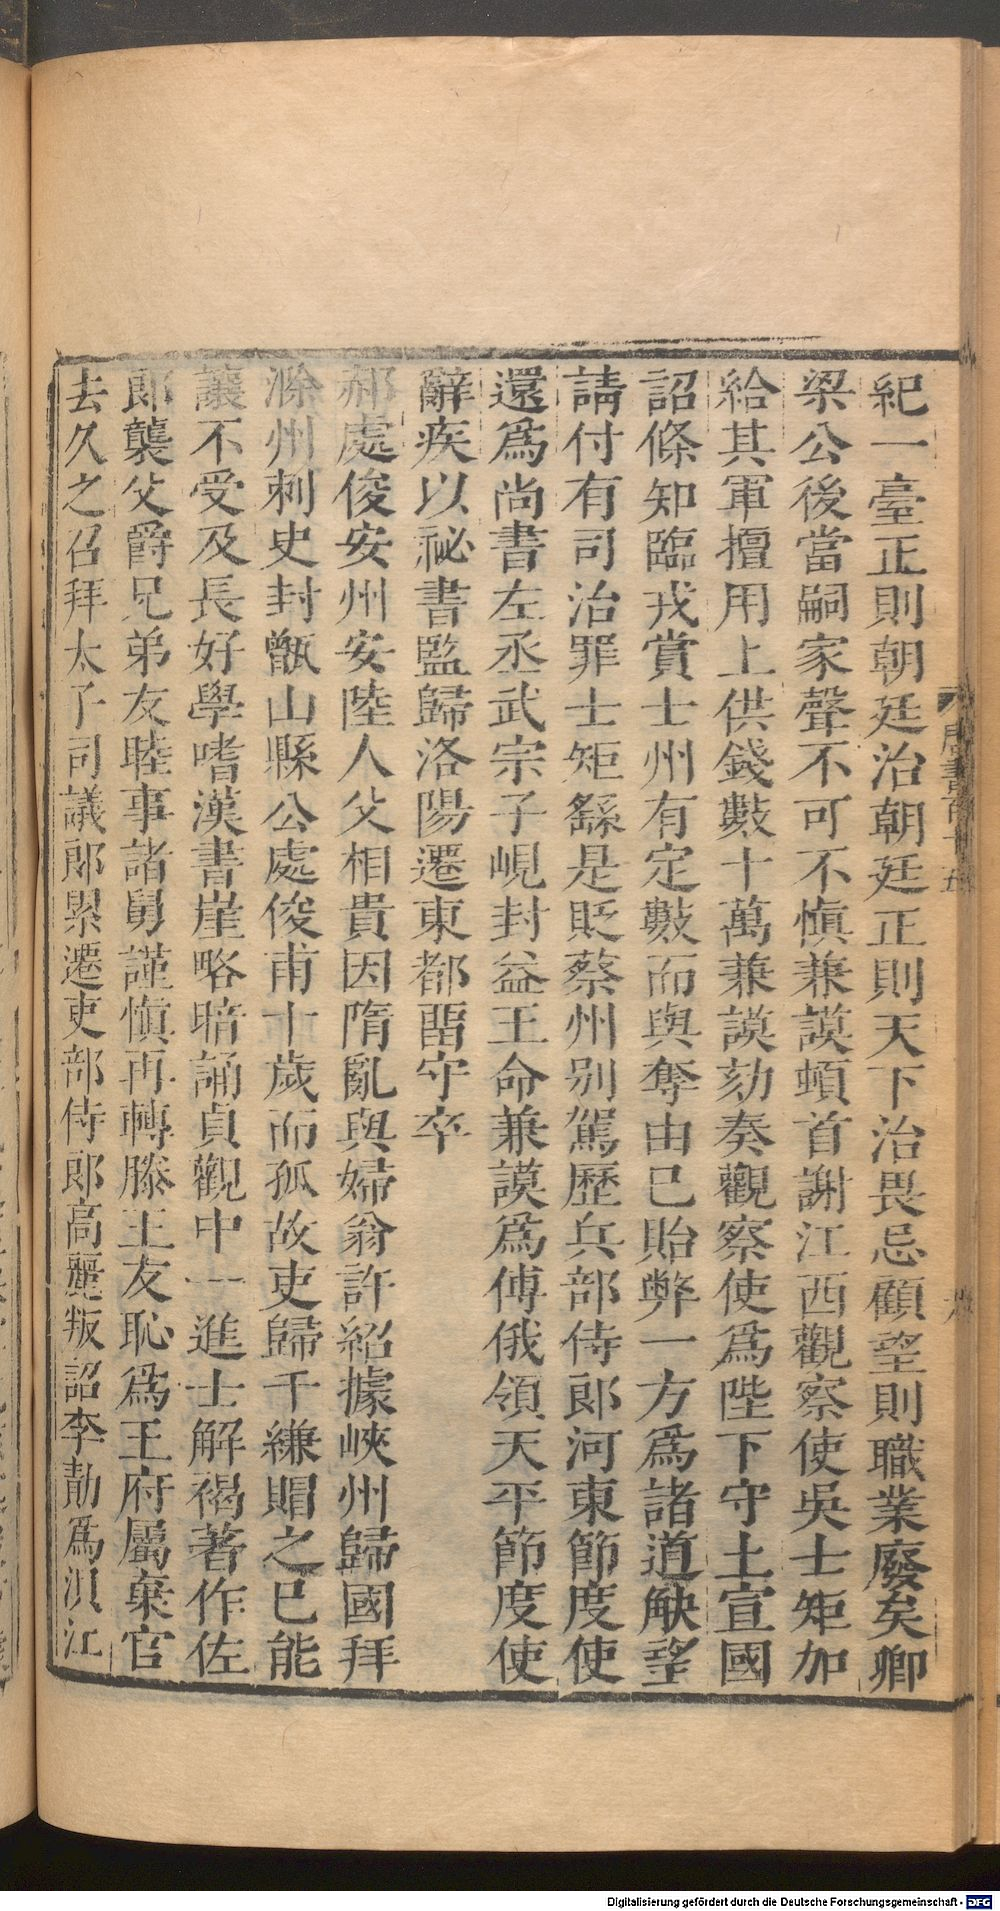 紀一臺正則朝廷治朝廷正則天下治畏忌顧望則職業廢矣卿
梁公後當嗣家聲不可不愼兼謨頓首謝江西觀察使吳士矩加
給其軍擅用上供錢數十萬兼謨劾奏觀察使爲陛下守土宣國
詔條知臨戎賞士州有定數而與奪由已貽弊一方爲諸道觖望
請付有司治罪士矩繇是貶蔡州別駕歷兵部侍郎河東節度使
還爲尚書左丞武宗子峴封益王命兼謨爲傅俄領天平節度使
辭疾以祕書監歸洛陽遷東都畱守卒
郝處俊安州安陸人父相貴因隋亂與婦翁許紹據峽州歸國拜
滁州刺史封甑山縣公處俊甫十歲而孤故吏歸千縑賵之已能
讓不受及長好學嗜漢書崖略暗誦貞觀中一進士解褐著作佐
郎襲父爵兄弟友睦事諸舅謹愼再轉滕王友恥爲王府屬棄官
去久之召拜太子司議郎累遷吏部侍郎高麗叛詔李勣爲浿江
唐書百十五
六
Digitalisierung gefördert durch die Deutsche Forschungsgemeinschaft - DFG